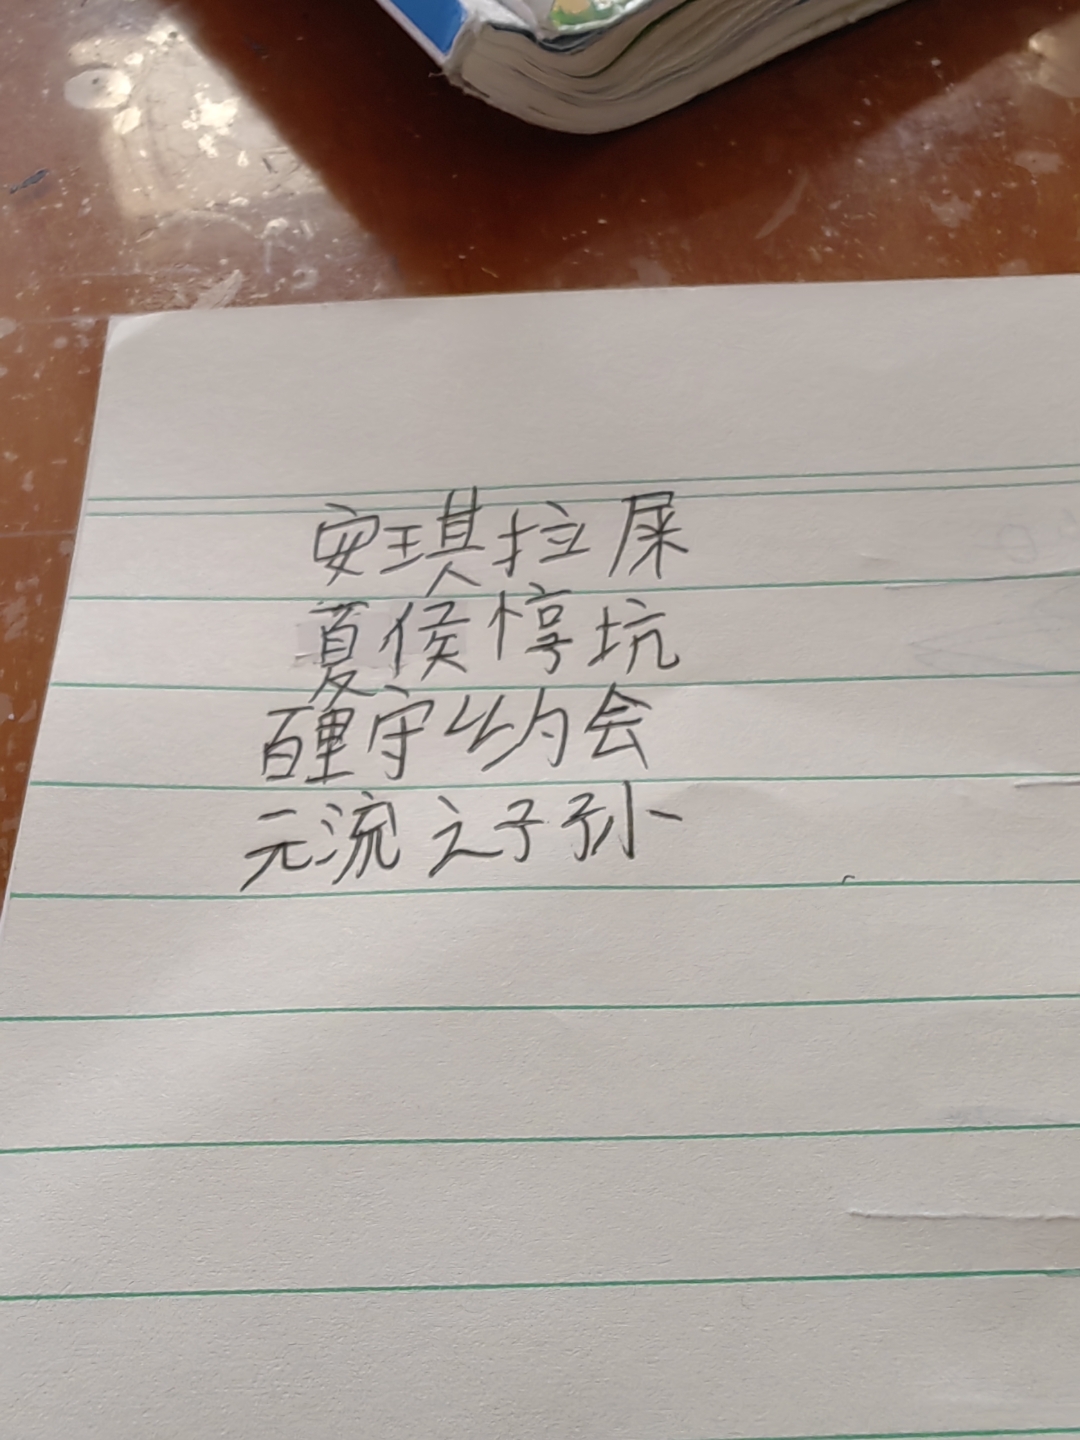 安琪拉屎
夏侯惇坑
百里守约会
元流之子孙